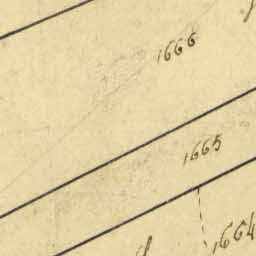 1666
1665
1664